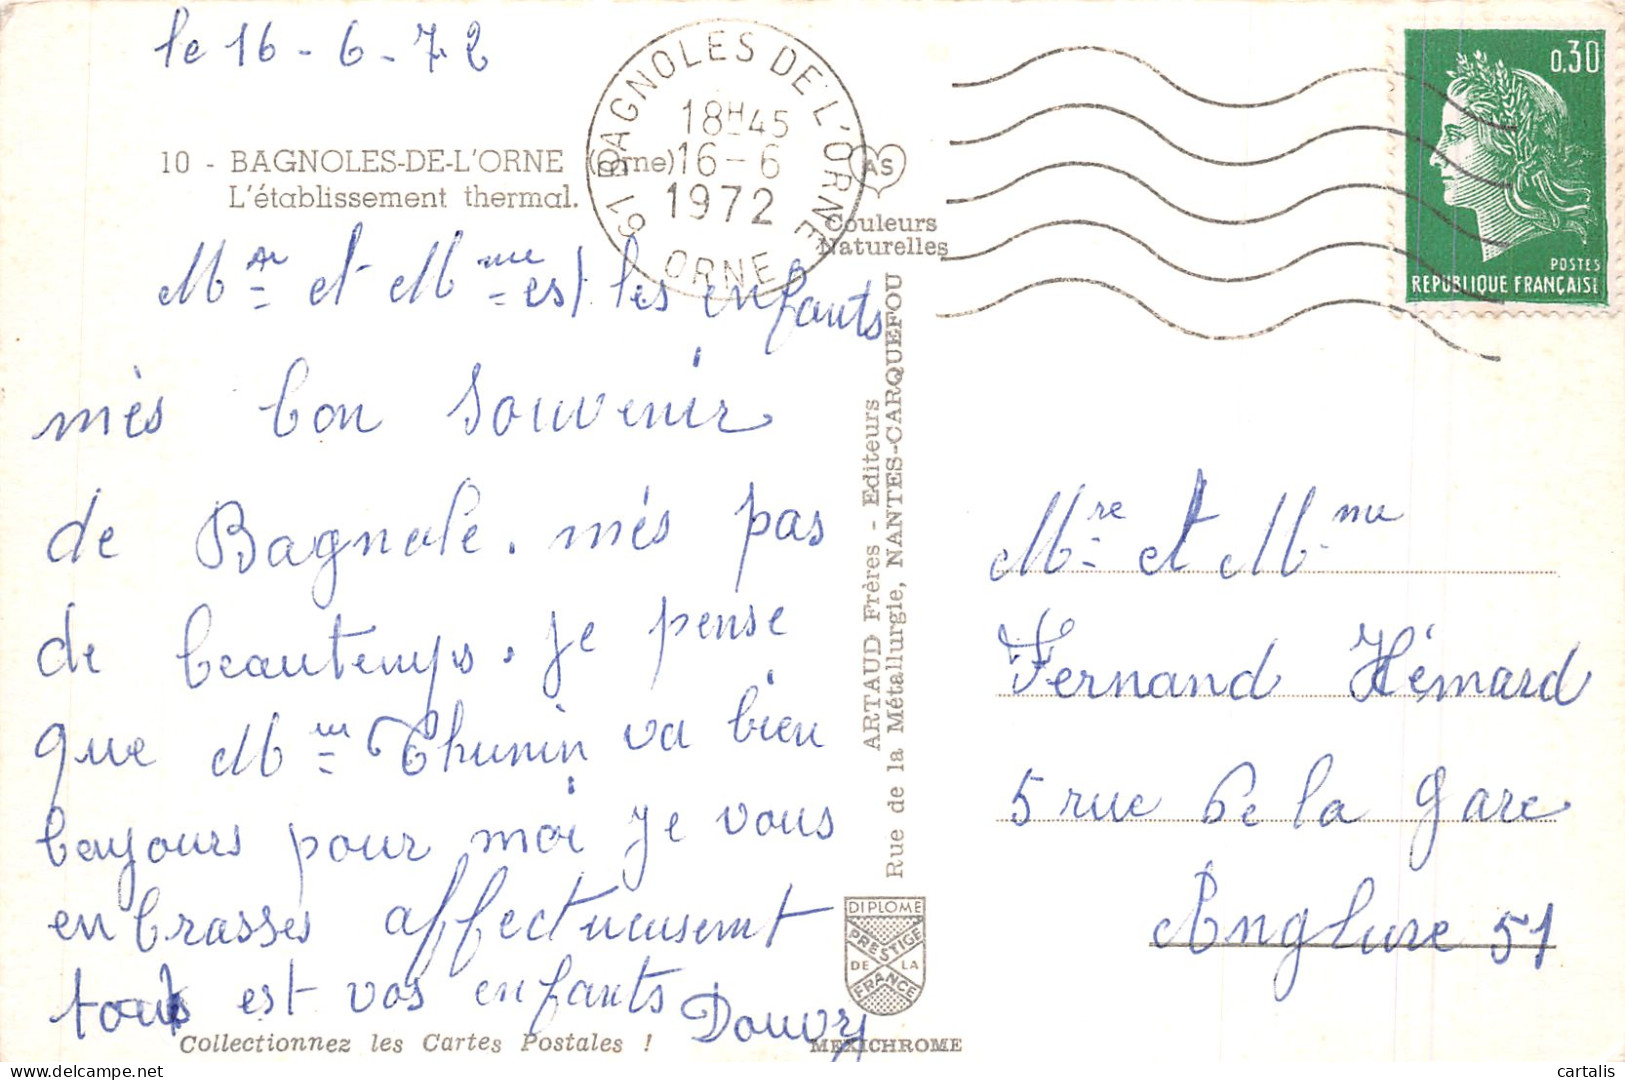 le 16-6-72
10 - BAGNOLES-DE-L'ORNE (Orne)
L'établissement thermal.
61 BAGNOLES DE L'ORNE
18H45
16-6
1972
ORNE
AS
Couleurs
Naturelles
0,30
POSTES
REPUBLIQUE FRANÇAISE
Mre et Mme est les enfants
mès bon souvenir
de Bagnole. més pas
de beautemps. je pense
que Mme Thunin va bien
toujours pour moi je vous
enbrasses affectueusemt
tous est vos enfants
Douvry
ARTAUD Frères - Editeurs
Rue de la Métallurgie, NANTES-CARQUEFOU
Mre et Mme
Fernand Hémard
5 rue de la gare
Anglure 51
DIPLOME
PRESTIGE
DE LA
FRANCE
Collectionnez les Cartes Postales !
MEXICHROME
cartalis